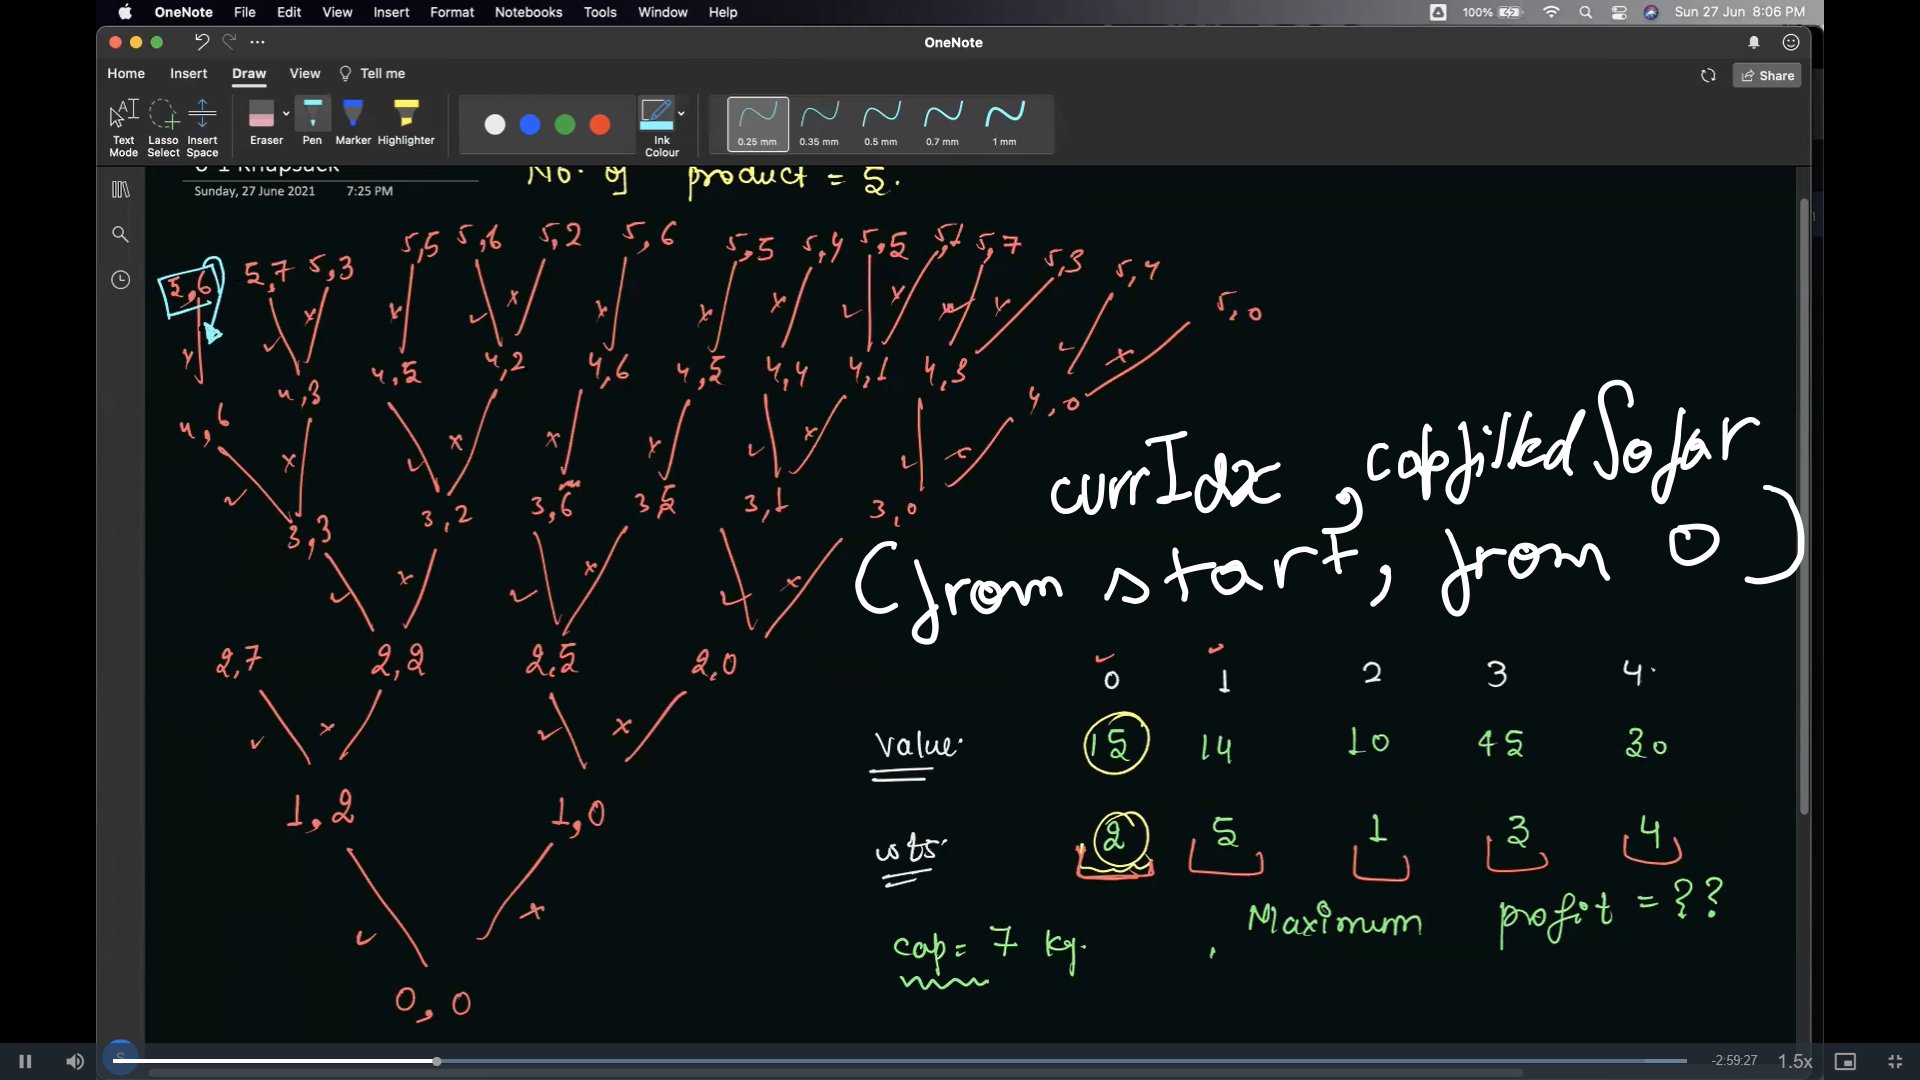 OneNote File Edit View Insert Format Notebooks Tools Window Help 100% Sun 27 Jun 8:06 PM
OneNote
Home Insert Draw View Tell me Share
Text Mode Lasso Select Insert Space Eraser Pen Marker Highlighter Ink Colour 0.25 mm 0.35 mm 0.5 mm 0.7 mm 1 mm
0-1 Knapsack
No. of product = 5.
Sunday, 27 June 2021 7:25 PM
5,6 5,7 5,3 5,5 5,6 5,2 5,6 5,5 5,4 5,5 5,1 5,7 5,3 5,4 5,0
4,6 4,3 4,5 4,2 4,6 4,5 4,4 4,1 4,3 4,0
3,3 3,2 3,6 3,5 3,1 3,0
currIdx, capfilledSofar
(from start, from 0)
2,7 2,2 2,5 2,0
1,2 1,0
0,0
0 1 2 3 4.
value. 15 14 10 45 30
wts. 2 5 1 3 4
cap = 7 kg. , Maximum profit = ??
-2:59:27 1.5x